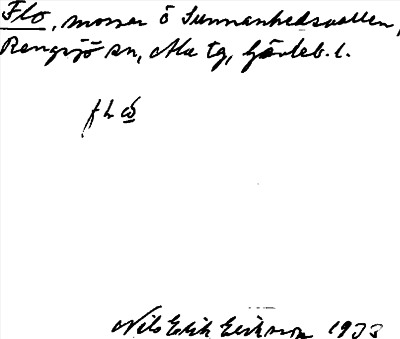 Flo, mossar ö Sunnanhedsvallen,
Rengsjö sn, Ala tg, Gävleb. l.
flω̲
Nils Erik Eriksson 1933